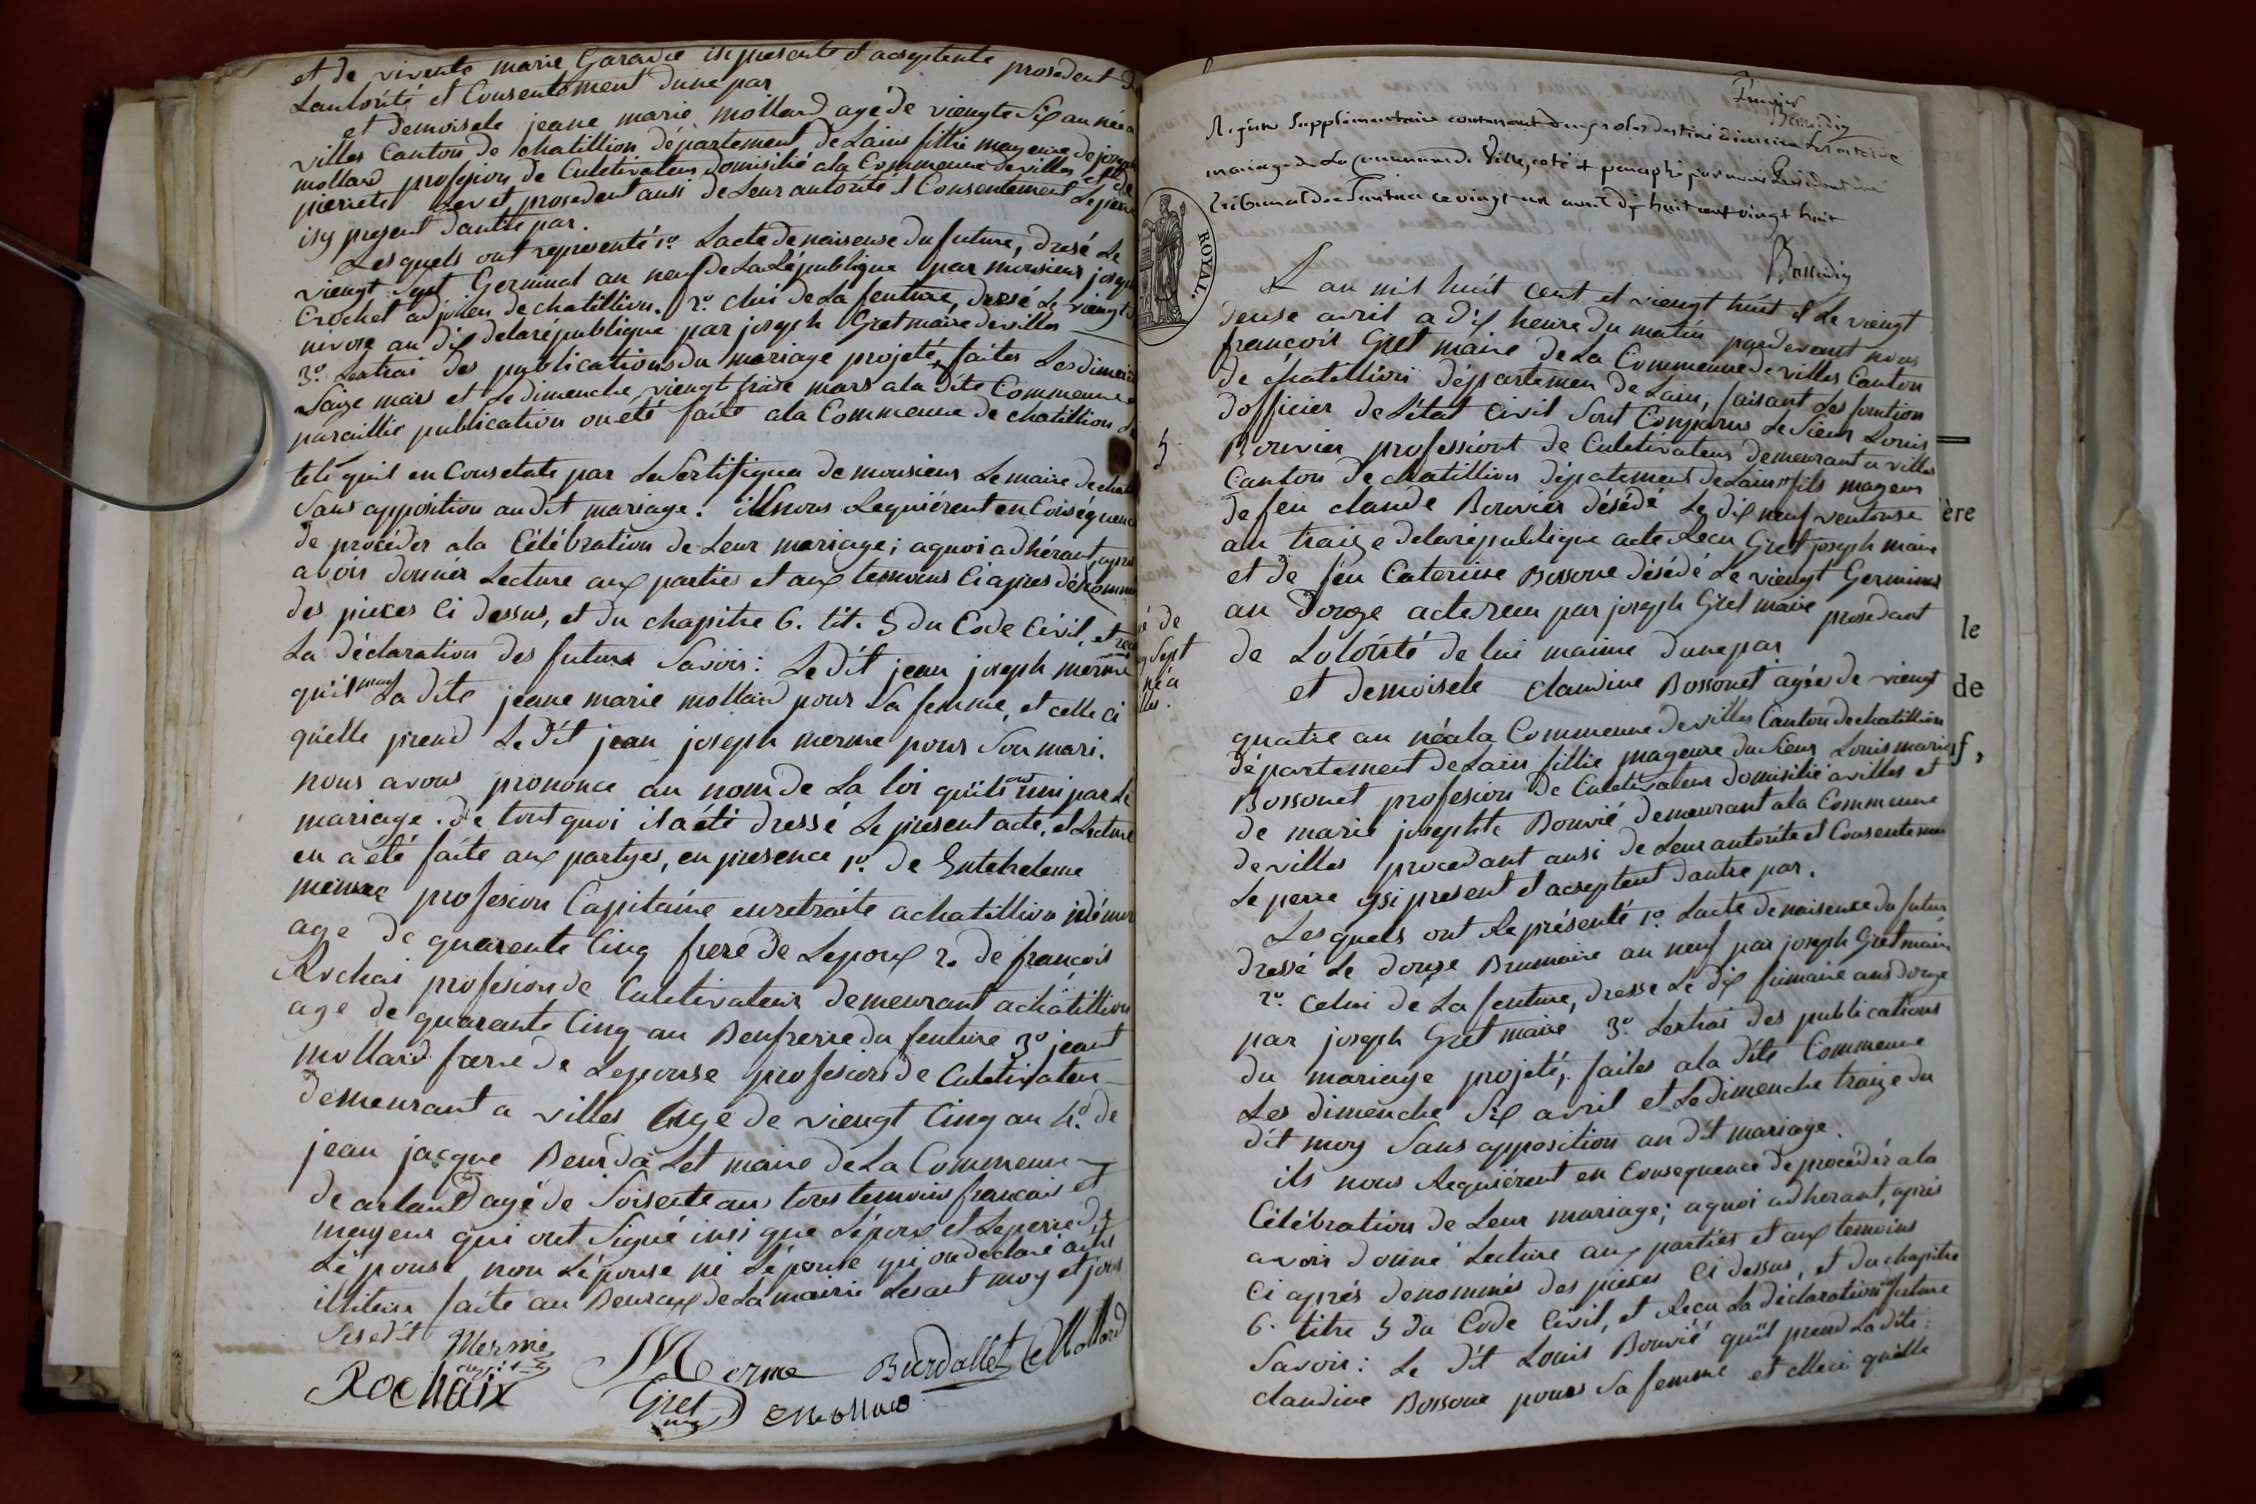 et de vivente marie Garavie isy presente et acseptente prosedent de
Lantorité et Consentement dune par
et demoisele jeane marie mollard agé de viengte Six an née a
villes Canton de chatillion département de Lains fillie mageure de joseph
mollard profesion de Culetivateur domisilié a la Commeune de villes et de
pierrete Ber et prosedent ausi de Leur autorité et Consentement Le pere
isy present dautre par.
Les quels out representé 1o Lacte de naisense du future, dresé Le
viengt Sept Germinal an neuf de La République par monsieur joseph
Crochet adjoien de chatillion. 2o Clui de La feuture, dressé Le viengt
nivose an dix de la république par joseph Gret maire de villes
3o Lextrai des publications du mariage projeté, faites Les dimenche
Saize mars et Le dimenche viengt traise mars a la dite Commeune
paraillie publication on été faite a la Commeune de chatillion
tele quil en Consetate par Le Sertifiqua de monsieur Le maire de chatillion
Sans apposition au dit mariage. ils nous Requièrent en Conséquence
de procéder a la Célébration de Leur mariage; a quoi adhérant, apres
avoir donnér Lecture aux parties et aux temoins Ci apres dénommé
des pieces Ci dessus, et du chapitre 6. tit. 5 du Code Civil, et recu
La déclaration des futurs Savoir: Le dit jean joseph merme
qu'il prend La dite jeane marie mollard pour Sa femme, et celle ci
qu'elle prend Le dit jean joseph merme pour Son mari.
nous avons prononcé au nom de La loi qu'ils son uni par Le
mariage. de tout quoi il a été dressé Le present acte, et Lecture
en a été faite aux partyes, en presence 1o. de
merme profesion Capitaine en retraite a chatillion
age de quarente Cinq frere de Lepoux 2o de francois
Rochai profesion de Culetivateur demeurant a chatillion
age de quarante Cinq an Beufrerre du feuture 3o jeant
mollard frerre de Lepouse profesion de Culetivateur
demeurant a villes agé de viengt Cinq an 4o. de
jean jacque Beurdalet maire de La Commeune
de arlant agé de Soisente an tous temoins francais et
mageur qui ont Signé insi que Lépoux et Le perre de
Lépouse, non Lépouse ni qui on declaré aitre
illiterre faite au Beuraux de La mairie Les ant moy et jour
Susedit
Merme
Merme
Burdallet
Mollard
Rochaix
Gret
Mollard
Registre Supplémentaire contenant
mariage de La Commune de Villes, coté et paraphé par nous Président du
Tribunal de Nantua ce vingt un avril dix huit cent vingt huit
ROYAL.
L an mil huit cent et viengt huit et Le viengt
deuse avril a dix heure du matin pardevant nous
françois Gret maire de La Commeune de villes Canton
de chatillion départemen de Lain, faisant Les fontion
dofficier de Létat Civil Sont Conparus Le Sieur Louis
5
Bouvier professiont de Culetivateur demeurant a villes
Canton de chatillion dépatement de Lain fils mageur
de feu claude Bouvier désédé Le dix neuf ventouse
ère
an traize de la république acte Recu Gret joseph maire
et de feu Caterine Bossone désédé Le viengt Germinal
an douze acte recu par joseph Gret maire prosedant
le
de Lotorité de lui maime dune par
et demoisele claudine Bossonet agée de viengt
de
quatre an né a la Commeune de villes Canton de chatillion
département de Lain fillie mageure du Sieur Louis marie
f,
Bossonet profesion de Culetivateur domisilié a villes et
de marie josephte Bouvié demeurant a la Commeune
de villes procedant ausi de Leur autorité et Consentemen
Le perre ysi present et acseptent dautre par.
Les quels ont Représenté 1o. Lacte de naisense du futur
dressé Le douze Brumaire an neuf par joseph Gret maire
2o. Celui de La feuture, dresse Le dix frimaire ans douze
par joseph Gret maire 3o. Lextrai des publications
du mariage projeté, faites a la dite Commeune
Les dimenche Six avril et Le dimenche traize du
dit moy Sans apposition au dit mariage.
ils nous Requièrent en Consequence de procédér a la
Célébration de Leur mariage; a quoi adherant, apris
avoir donné Lecture aux parties et aux temoins
Ci après denommés des pieces Ci dessus, et du chapitre
6. titre 5 du Code Civil, et Recu La déclaration future
Savoir: Le dit Louis Bouvié qu'il prend La dite:
claudine Bossone pour Sa femme et celle ci qu'elle
é de
Sept
né a